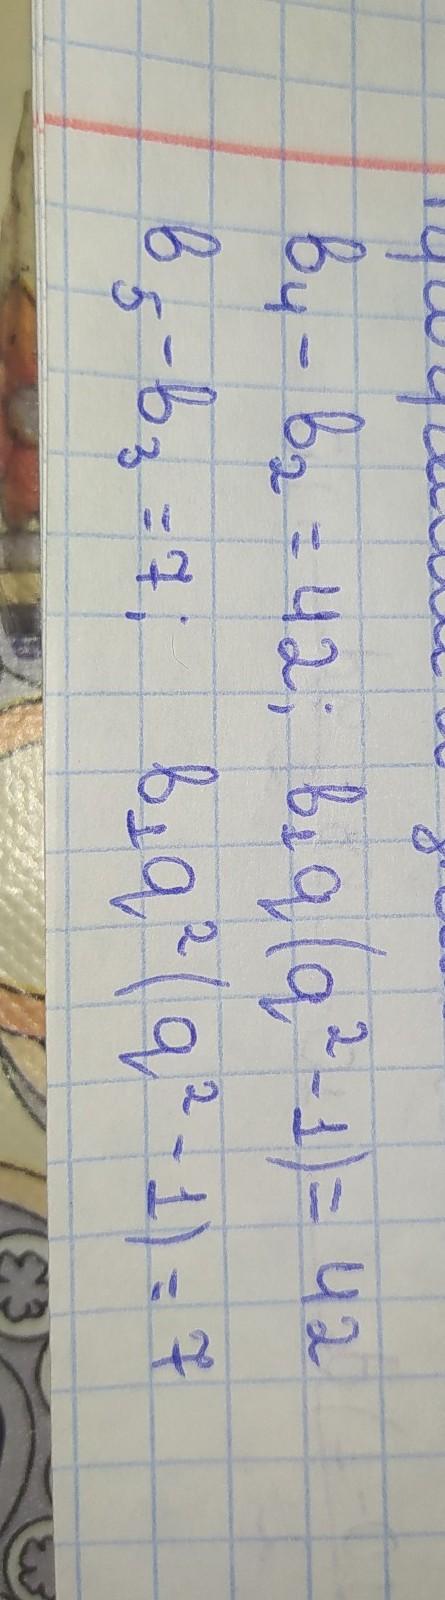 b₄ - b₂ = 42; b₁q(q² - 1) = 42
b₅ - b₃ = 7; b₁q²(q² - 1) = 7